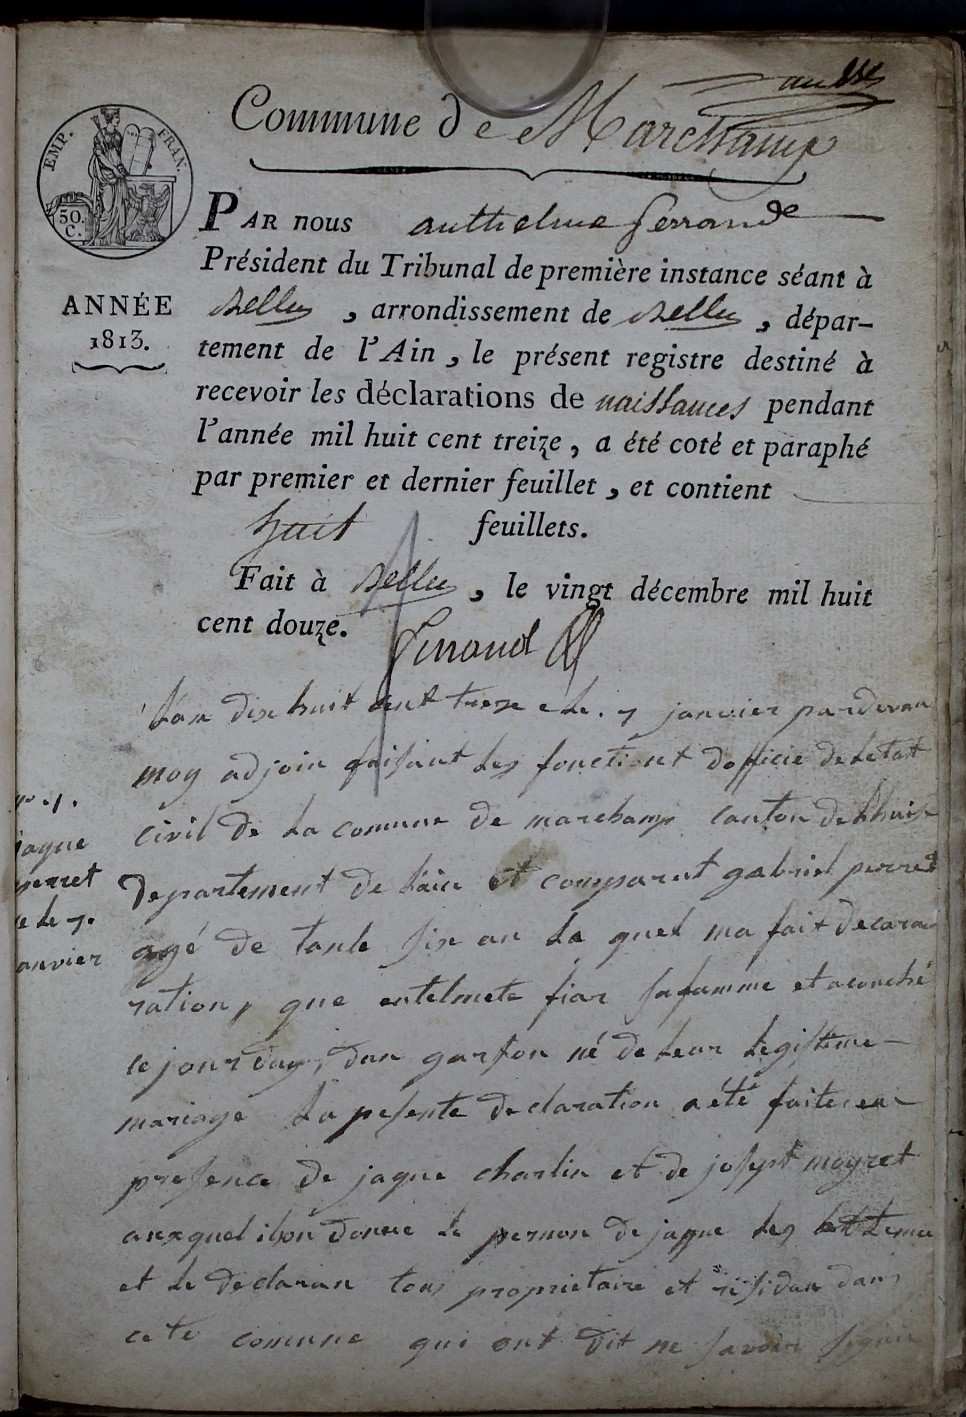 Commune de Marchamp
EMP. FRAN.
50.
C.
ANNÉE
1813.
PAR nous anthelme ferrand
Président du Tribunal de première instance séant à
Belley, arrondissement de Belley, dépar-
tement de l'Ain, le présent registre destiné à
recevoir les déclarations de naissances pendant
l'année mil huit cent treize, a été coté et paraphé
par premier et dernier feuillet, et contient
huit feuillets.
Fait à Belley, le vingt décembre mil huit
cent douze.
ferrand
n° 1.
jaque
perret
le 7.
janvier
L'an dix huit cent treze e le. 7 janvier pardevan
moy adjoin faisant les fonctiont dofficie de letat
civil de la comune de marchamp canton de lhuis
departement de l'ain et comparut gabriel perret
agé de tante six an le quel ma fait decara
ration, que entelmete fiar sa famme et acouché
ce jourduy, dun garson né de leur legistime
mariage la pesente declaration a été faite en
presence de jaque charlin et de josept moyret
auxquel ihon donné le pernon de jaque les
et le declaran tous proprietaire et residan dans
cete comune qui ont dit ne savoir signé